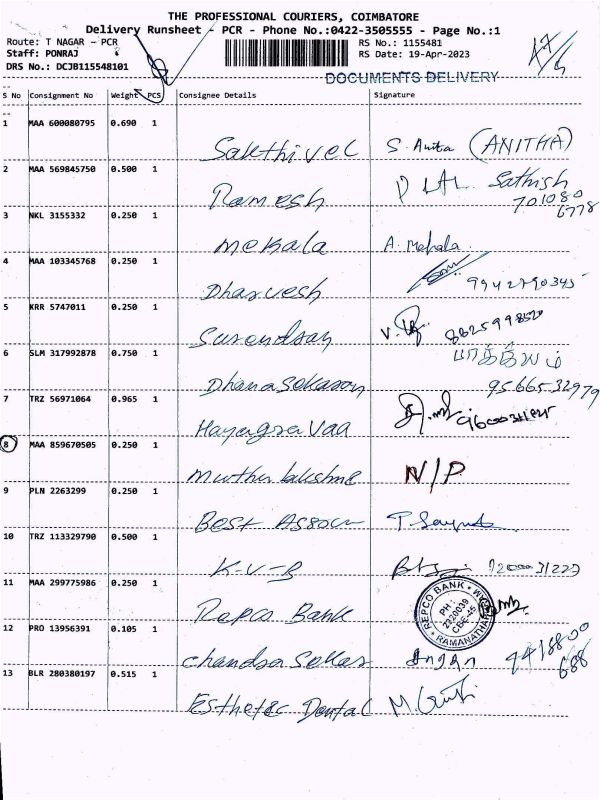 THE PROFESSIONAL COURIERS, COIMBATORE
Delivery Runsheet - PCR - Phone No.:0422-3505555 - Page No.:1
Route: T NAGAR - PCR
RS No.: 1155481
Staff: PONRAJ
RS Date: 19-Apr-2023
DRS No.: DCJB115548101
DOCUMENTS DELIVERY
S No Consignment No Weight PCS Consignee Details Signature
1 MAA 600080795 0.690 1
Sakthivel S. Anita (ANITHA)
2 MAA 569845750 0.500 1
Ramesh Sathish
701080
6778
3 NKL 3155332 0.250 1
Mekala A. Mekala
4 MAA 103345768 0.250 1
Dharvesh
5 KRR 5747011 0.250 1
Surendran 8825998520
6 SLM 317992878 0.750 1
பாக்கியம்
Dhanasekaran 9566532979
7 TRZ 56971064 0.965 1
Hayagravaa
8 MAA 859670505 0.250 1
N/P
9 PLN 2263299 0.250 1
Best Assoc
10 TRZ 113329790 0.500 1
K-V-B
11 MAA 299775986 0.250 1
Repco Bank
REPCO BANK
PH:
2320039
CBE-45
12 PRO 13956391 0.105 1
Chandra Sekar
13 BLR 280380197 0.515 1
Esthetic Dental